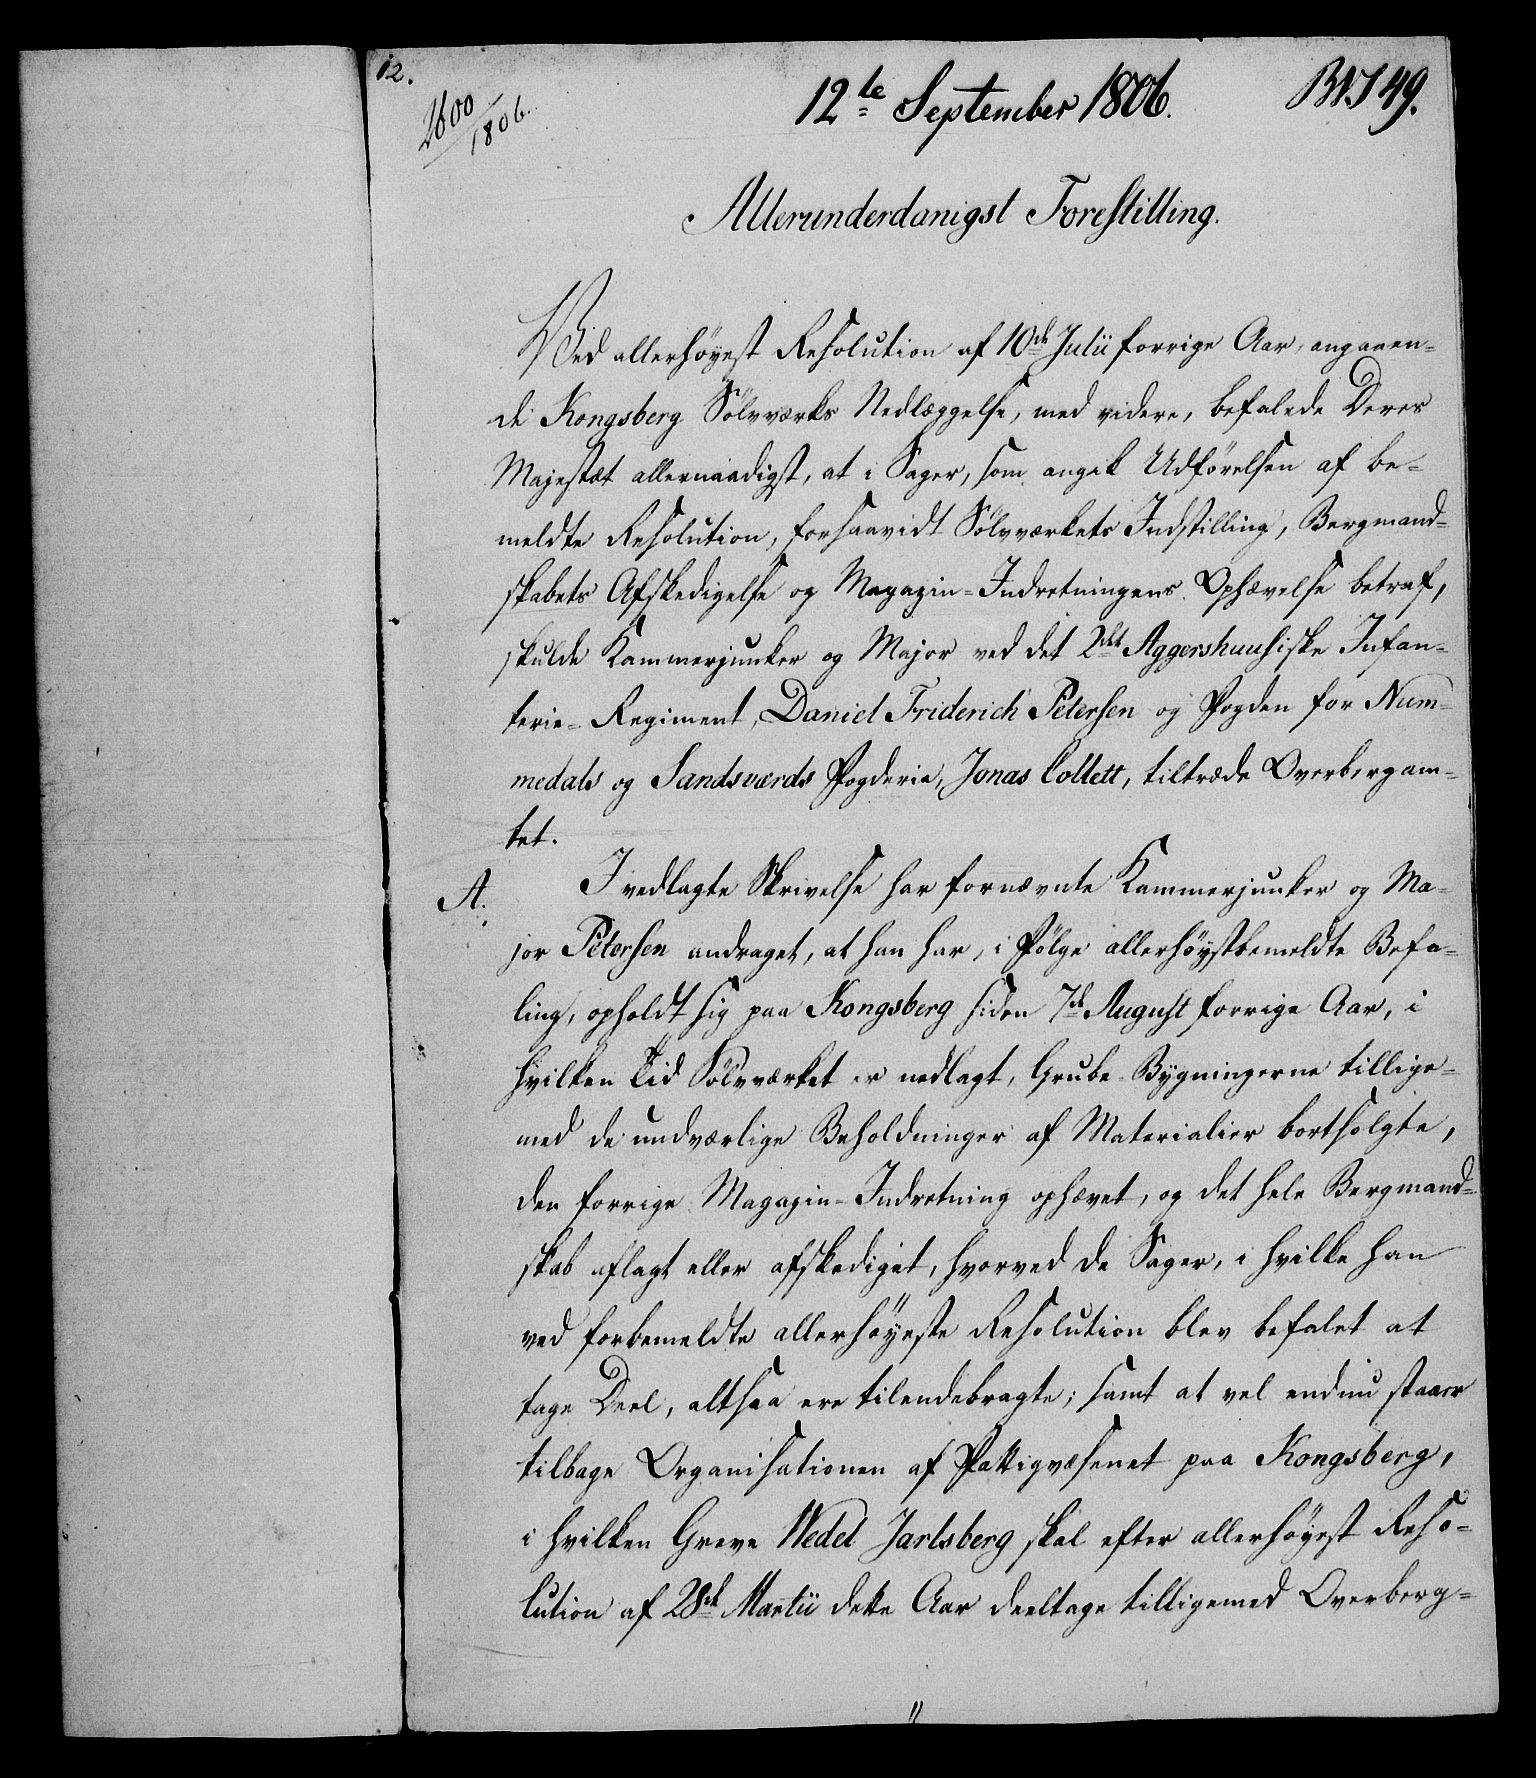 12.
2600
1806.
12te September 1806.
BN.S 49.
Allerunderdanigst Forestilling.
Ved allerhöyest Resolution af 10de Julii forrige Aar, angaaen-
de Kongsberg Sölvværks Nedlæggelse, med videre, befalede Deres
Majestæt allernaadigst, at i Sager, som angik Udförelsen af be-
meldte Resolution, forsaavidt Sölvværkets Indstilling, Bergmand-
skabets Afskedigelse og Magazin-Indretningens Ophævelse betraf,
skulde Kammerjunker og Major ved det 2det Aggershuusiske Infan-
terie-Regiment, Daniel Friderich Petersen og Fogden for Num-
medals og Sandsværds Fogderie, Jonas Collett, tiltræde Overbergam-
tet.
A.
I vedlagte Skrivelse har fornævnte Kammerjunker og Ma-
jor Petersen andraget, at han har, i Fölge allerhöystbemeldte Befa-
ling, opholdt sig paa Kongsberg siden 7de August forrige Aar, i
hvilken Tid Sölvværket er nedlagt, Grube-Bygningerne tillige-
med de undværlige Beholdninger af Materialier bortsolgte,
den forrige Magazin-Indretning ophævet, og det hele Bergmand-
skab aflagt eller afskediget, hvorved de Sager, i hvilke han
ved forbemeldte allerhöyeste Resolution blev befalet at
tage Deel, altsaa ere tilendebragte; samt at vel endnu staaer
tilbage Organisationen af Fattigvæsenet paa Kongsberg,
i hvilken Greve Wedel Jarlsberg skal efter allerhöyest Reso-
lution af 28de Martii dette Aar deeltage tilligemed Overberg-